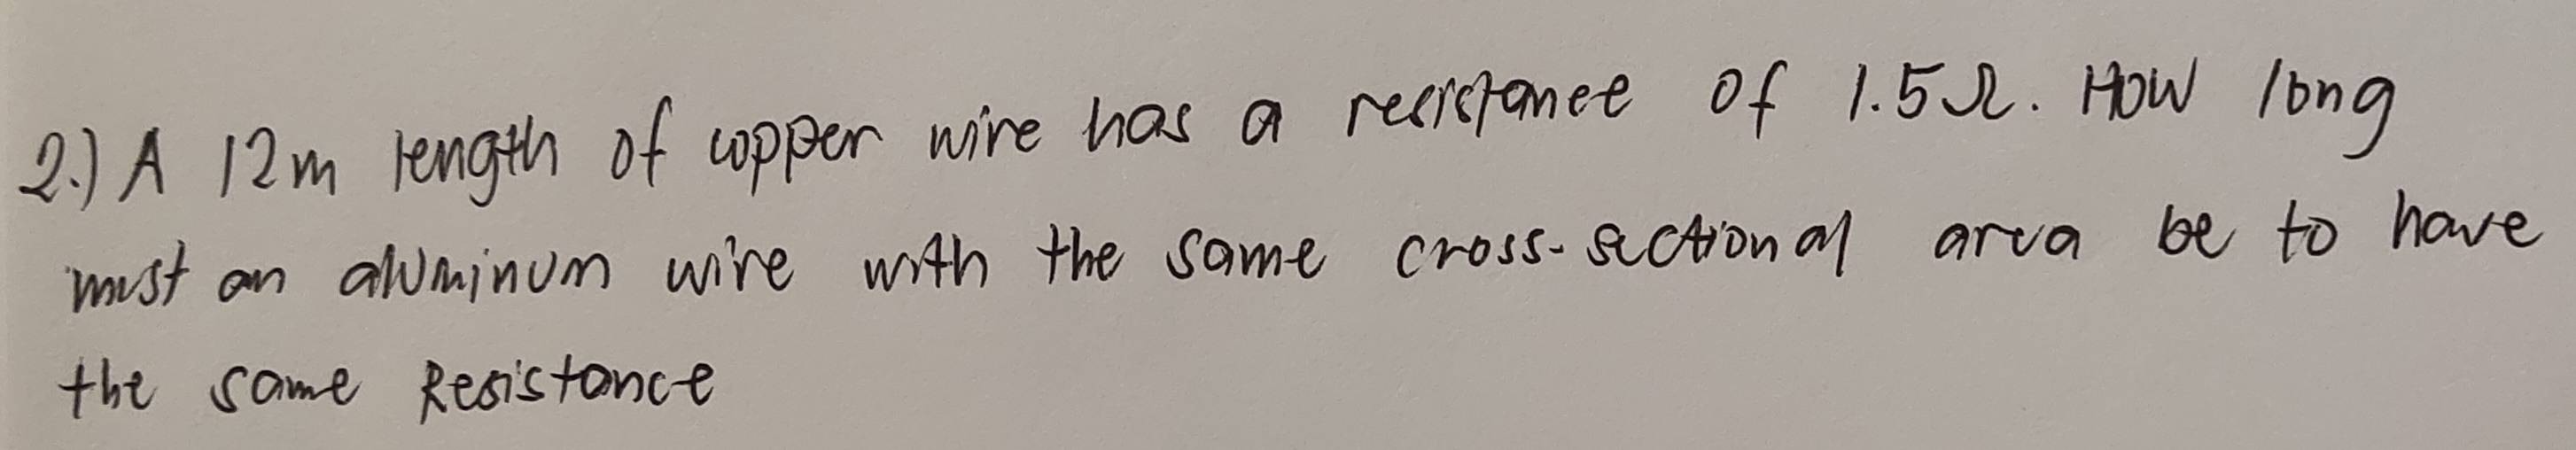 2.) A 12m length of copper wire has a resistance of 1.5Ω. How long
must an aluminum wire with the same cross-sectional area be to have
the same Resistance